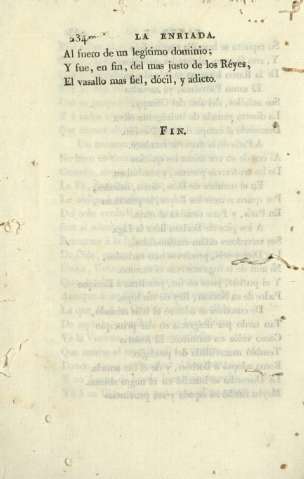 234 LA ENRIADA.
Al fuero de un legítimo dominio;
Y fue, en fin, del mas justo de los Réyes,
El vasallo mas fiel, dócil, y adicto.
FIN.